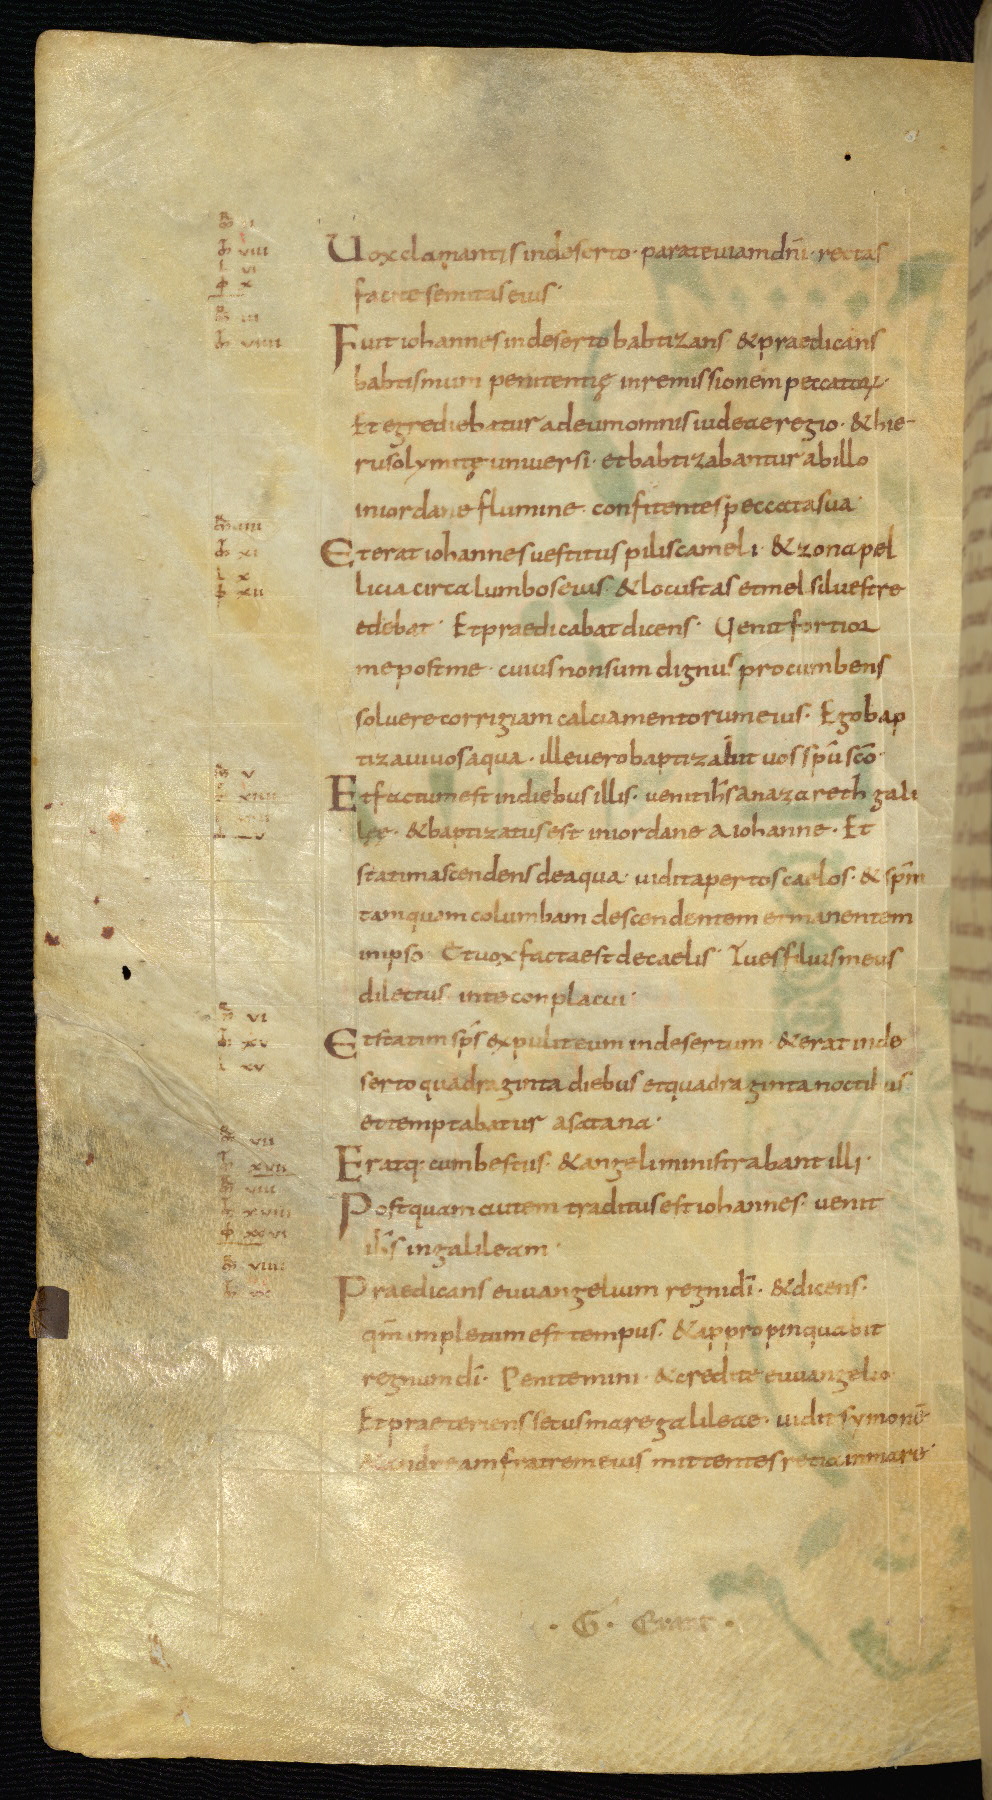 Uox clamantis in deserto · parate uiam dn̄i · rectas
facite semitas eius ·
Fuit iohannes in deserto babtizans & praedicans
babtismum penitentię in remissionem peccatoꝝ ·
Et egrediebatur ad eum omnis iudeae regio · & hie-
rusolymitę uniuersi · et babtizabantur ab illo
in iordane flumine · confitentes peccata sua ·
Et erat iohannes uestitus pilis cameli · & zona pel
licia circa lumbos eius · & locustas et mel siluestre
edebat · Et praedicabat dicens · Uenit fortior
me post me · cuius non sum dignus procumbens
soluere corrigiam calciamentorum eius · Ego bap
tizaui uos aqua · ille uero baptizabit uos sp̄u sc̄o ·
Et factum est in diebus illis · uenit ih̄s a nazareth gali
lęę · & baptizatus est in iordane a iohanne · Et
statim ascendens de aqua · uidit apertos caelos · & sp̄m
tamquam columbam descendentem et manentem
in ipso · Et uox facta est de caelis · Tu es filius meus
dilectus · in te conplacui ·
Et statim sp̄s expulit eum in desertum · & erat in de
serto quadraginta diebus et quadraginta noctibus
et temptabatur a satana ·
Eratq· cum bestiis · & angeli ministrabant illi ·
Postquam autem traditus est iohannes · uenit
ih̄s in galileam ·
Praedicans euuangelium regni dī · & dicens ·
qm̄ impletum est tempus · & appropinquauit
regnum dī · Penitemini · & credite euuangelio
Et praeteriens secus mare galileae · uidit symonē
& andream fratrem eius mittentes retia in mare ·